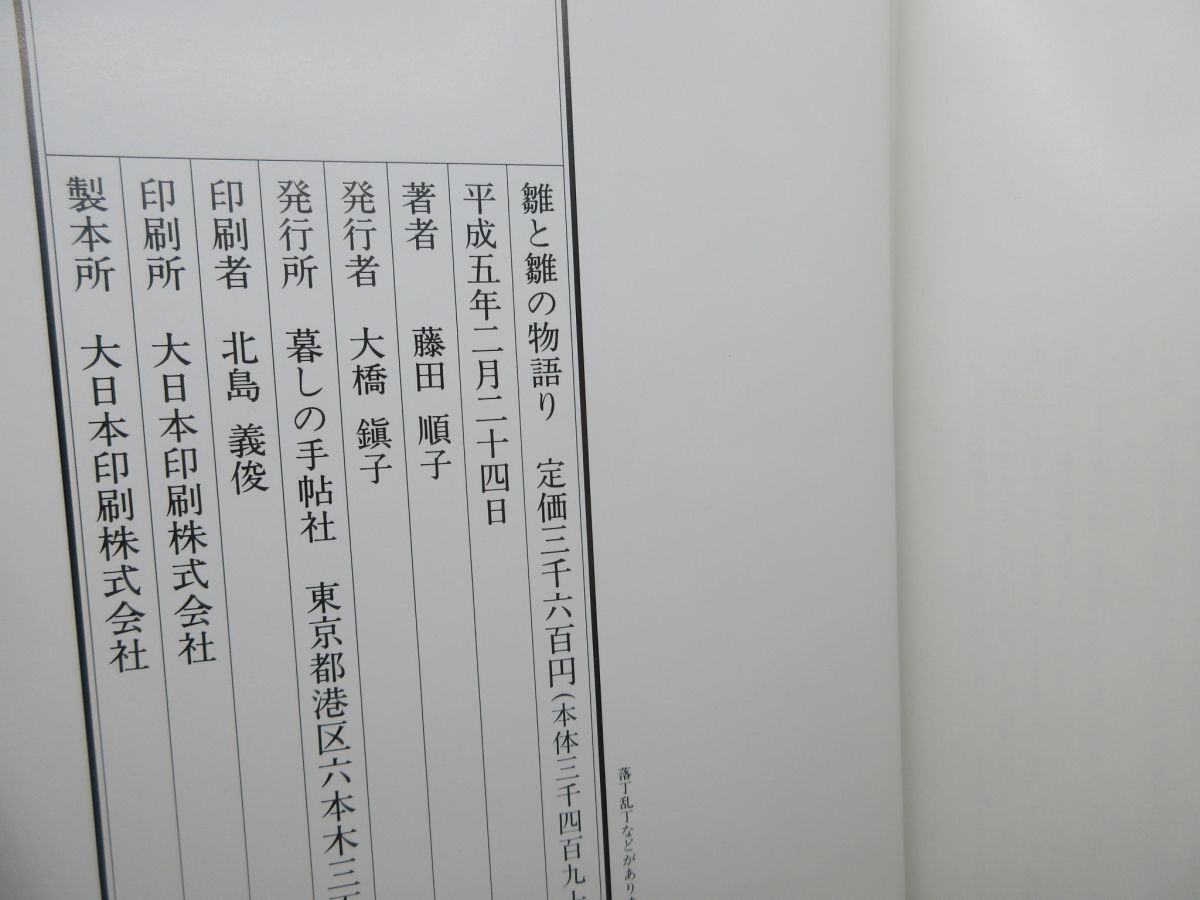 落丁乱丁などがあり
雛と雛の物語り　定価三千六百円(本体三千四百九
平成五年二月二十四日
著者　藤田 順子
発行者　大橋 鎭子
発行所　暮しの手帖社　東京都港区六本木三
印刷者　北島 義俊
印刷所　大日本印刷株式会社
製本所　大日本印刷株式会社